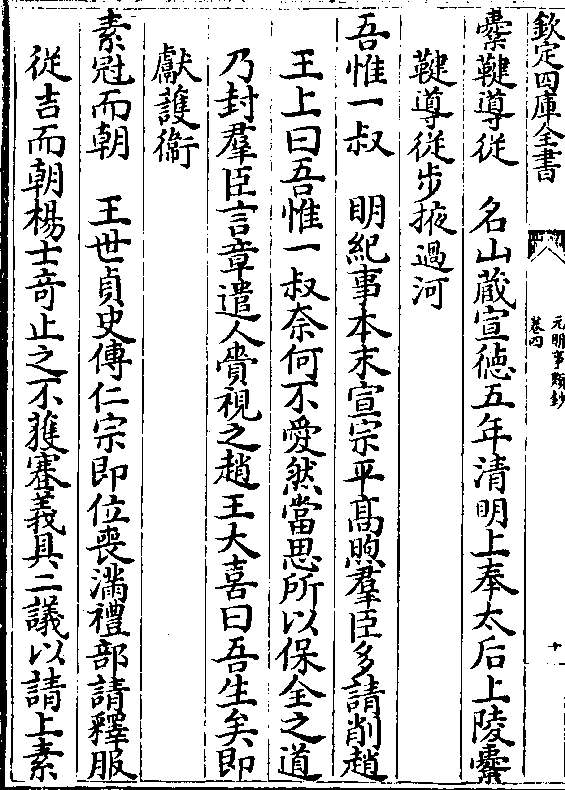 欽定四庫全書
元明事類鈔
卷四
十
櫜鞬導從　名山藏宣德五年清明上奉太后上陵櫜
鞬導從步掖過河
吾惟一叔　明紀事本末宣宗平髙煦羣臣多請削趙
王上曰吾惟一叔奈何不愛然當思所以保全之道
乃封羣臣言章遣人賫視之趙王大喜曰吾生矣即
獻護衞
素冠而朝　王世貞史傳仁宗即位喪滿禮部請釋服
從吉而朝楊士竒止之不獲蹇義具二議以請上素